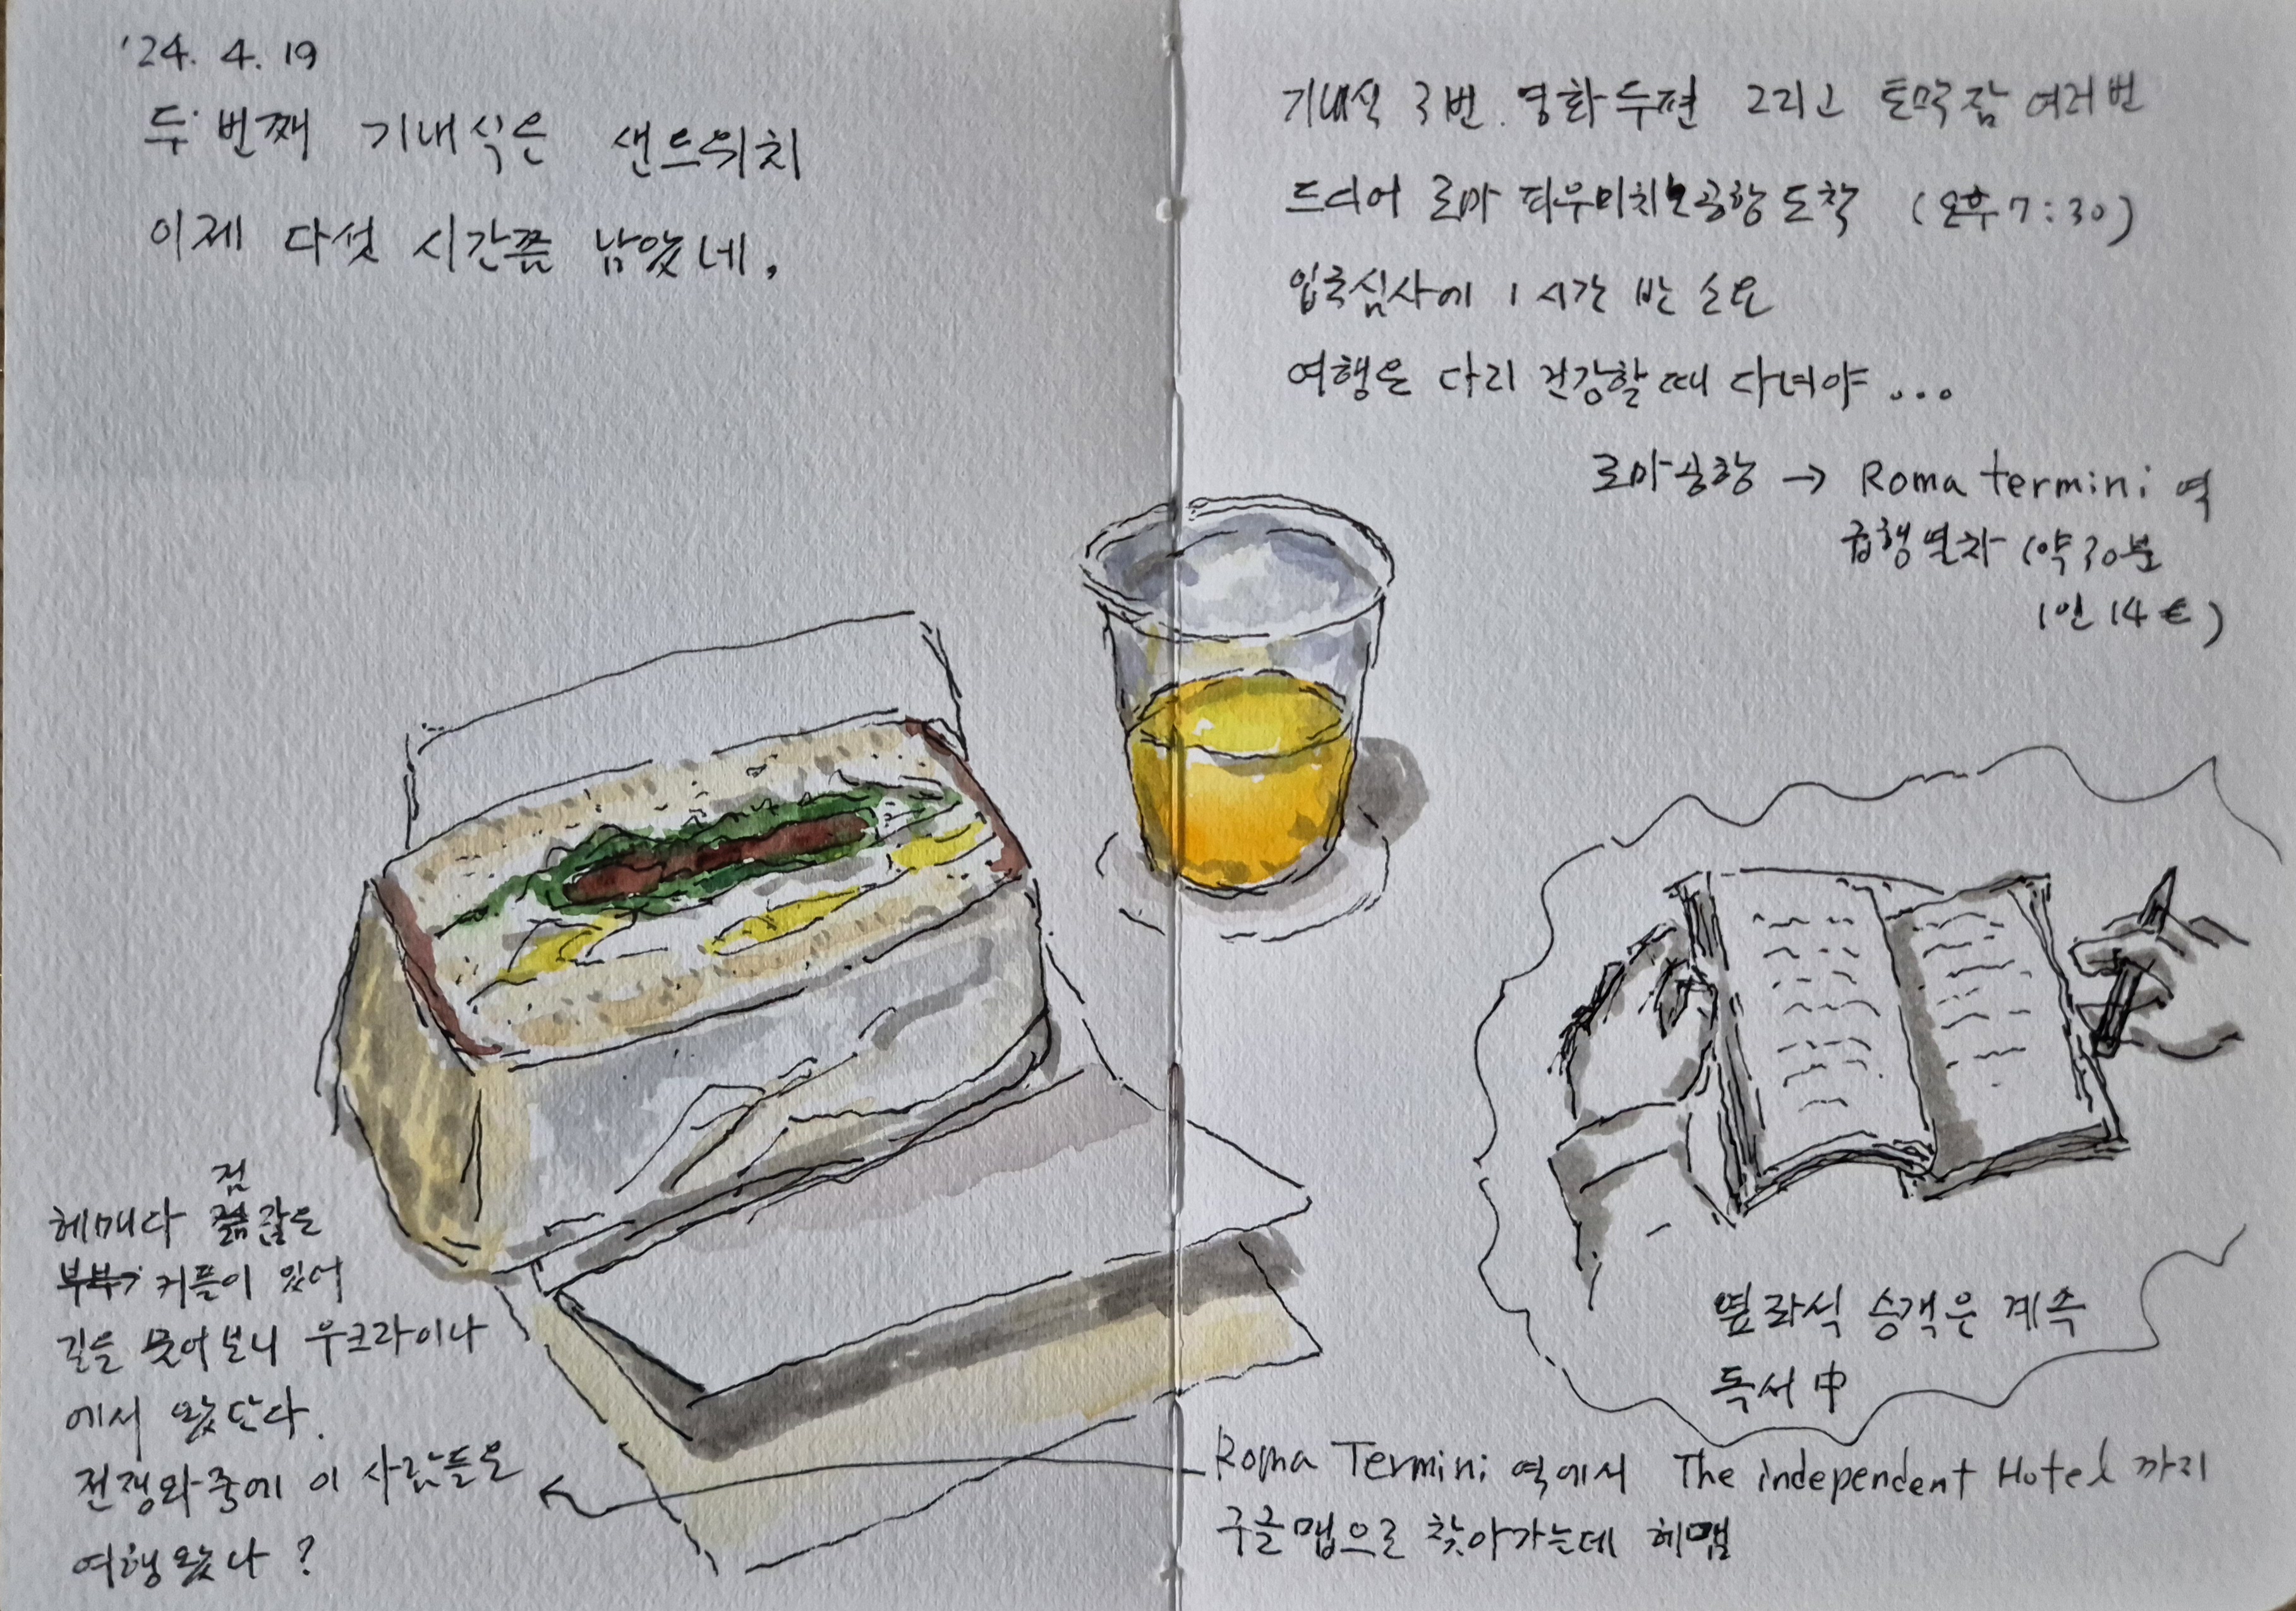 '24. 4. 19
두번째 기내식은 샌드위치
이제 다섯 시간쯤 남았네.
기내식 3번. 영화두편 그리고 토막잠 여러번
드디어 로마 피우미치노공항 도착 (오후 7:30)
입국심사에 1시간 반 소요
여행은 다리 건강할 때 다녀야 ...
로마공항 → Roma termini 역
급행열차 (약30분
1인 14€)
옆좌석 승객은 계속
독서 中
Roma Termini 역에서 The independent Hotel 까지
구글맵으로 찾아가는데 헤맴
점
헤매다 젊은
커플이 있어
길을 물어보니 우크라이나
에서 왔단다.
전쟁와중에 이 사람들은
여행왔나?